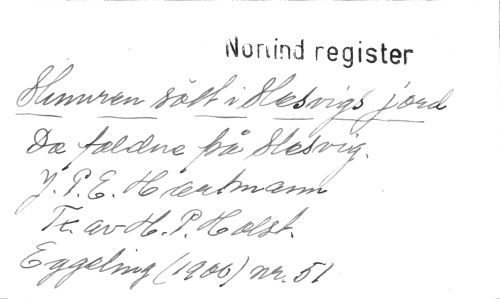 Norind register
Slumren sött i Slesvigs jord
De faldne på Slesvig.
J. P. E. Hartmann
Tx. av H. P. Holst.
Eggeling (1906) nr. 51